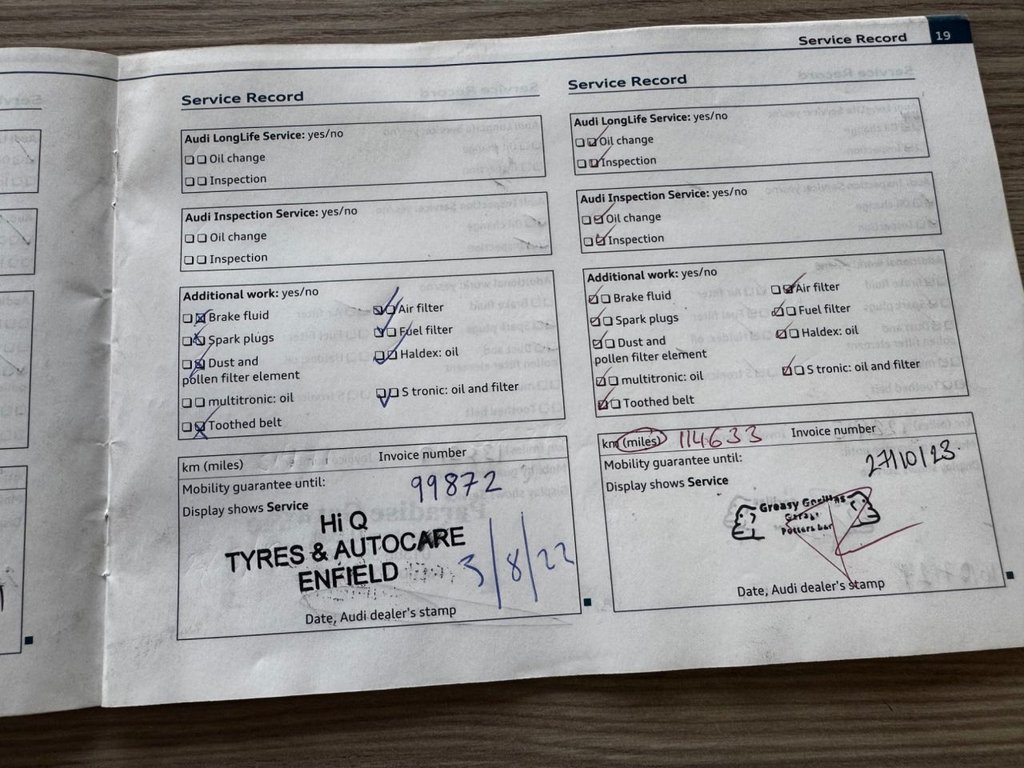 Service Record 19
Service Record
Audi LongLife Service: yes/no
Oil change
Inspection
Audi Inspection Service: yes/no
Oil change
Inspection
Additional work: yes/no
Brake fluid
Air filter
Spark plugs
Fuel filter
Dust and
pollen filter element
Haldex: oil
multitronic: oil
S tronic: oil and filter
Toothed belt
km (miles)
Invoice number
Mobility guarantee until:
99872
Display shows Service
Hi Q
TYRES & AUTOCARE
ENFIELD
3/8/22
Date, Audi dealer's stamp
Service Record
Audi LongLife Service: yes/no
Oil change
Inspection
Audi Inspection Service: yes/no
Oil change
Inspection
Additional work: yes/no
Brake fluid
Air filter
Spark plugs
Fuel filter
Dust and
pollen filter element
Haldex: oil
multitronic: oil
S tronic: oil and filter
Toothed belt
km (miles) 114633
Invoice number
Mobility guarantee until:
27/10/23
Display shows Service
Greasy Gorillas
Potters bar
Date, Audi dealer's stamp